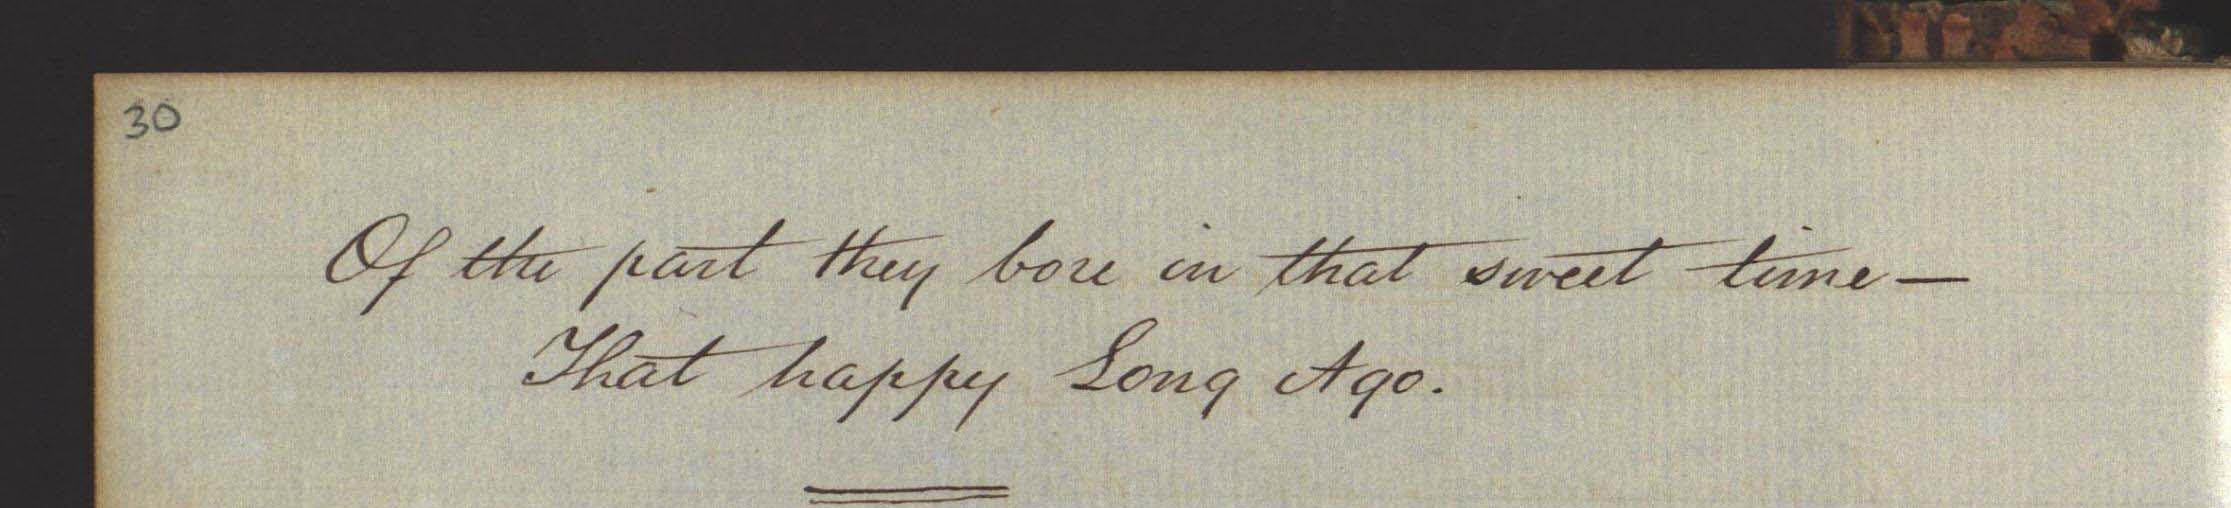 30
Of the part they bore in that sweet time —
That happy Long Ago.